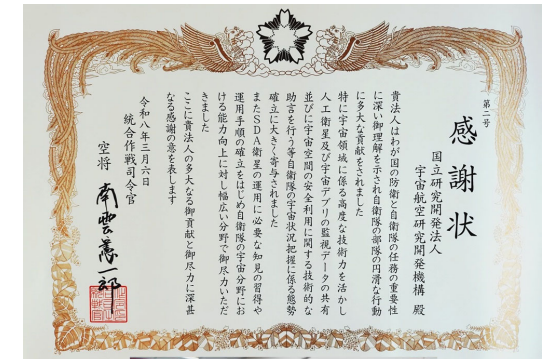 第二号
感謝状
国立研究開発法人
宇宙航空研究開発機構 殿
貴法人はわが国の防衛と自衛隊の任務の重要性
に深い御理解を示され自衛隊の部隊の円滑な行動
に多大な貢献をされました
特に宇宙領域に係る高度な技術力を活かし
人工衛星及び宇宙デブリの監視データの共有
並びに宇宙空間の安全利用に関する技術的な
助言を行う等自衛隊の宇宙状況把握に係る態勢
確立に大きく寄与されました
またSDA衛星の運用に必要な知見の習得や
運用手順の確立をはじめ自衛隊の宇宙分野にお
ける能力向上に対し幅広い分野で御尽力いただ
きました
ここに貴法人の多大なる御貢献と御尽力に深甚
なる感謝の意を表します
令和八年三月六日
統合作戦司令官
空将 南雲憲一郎